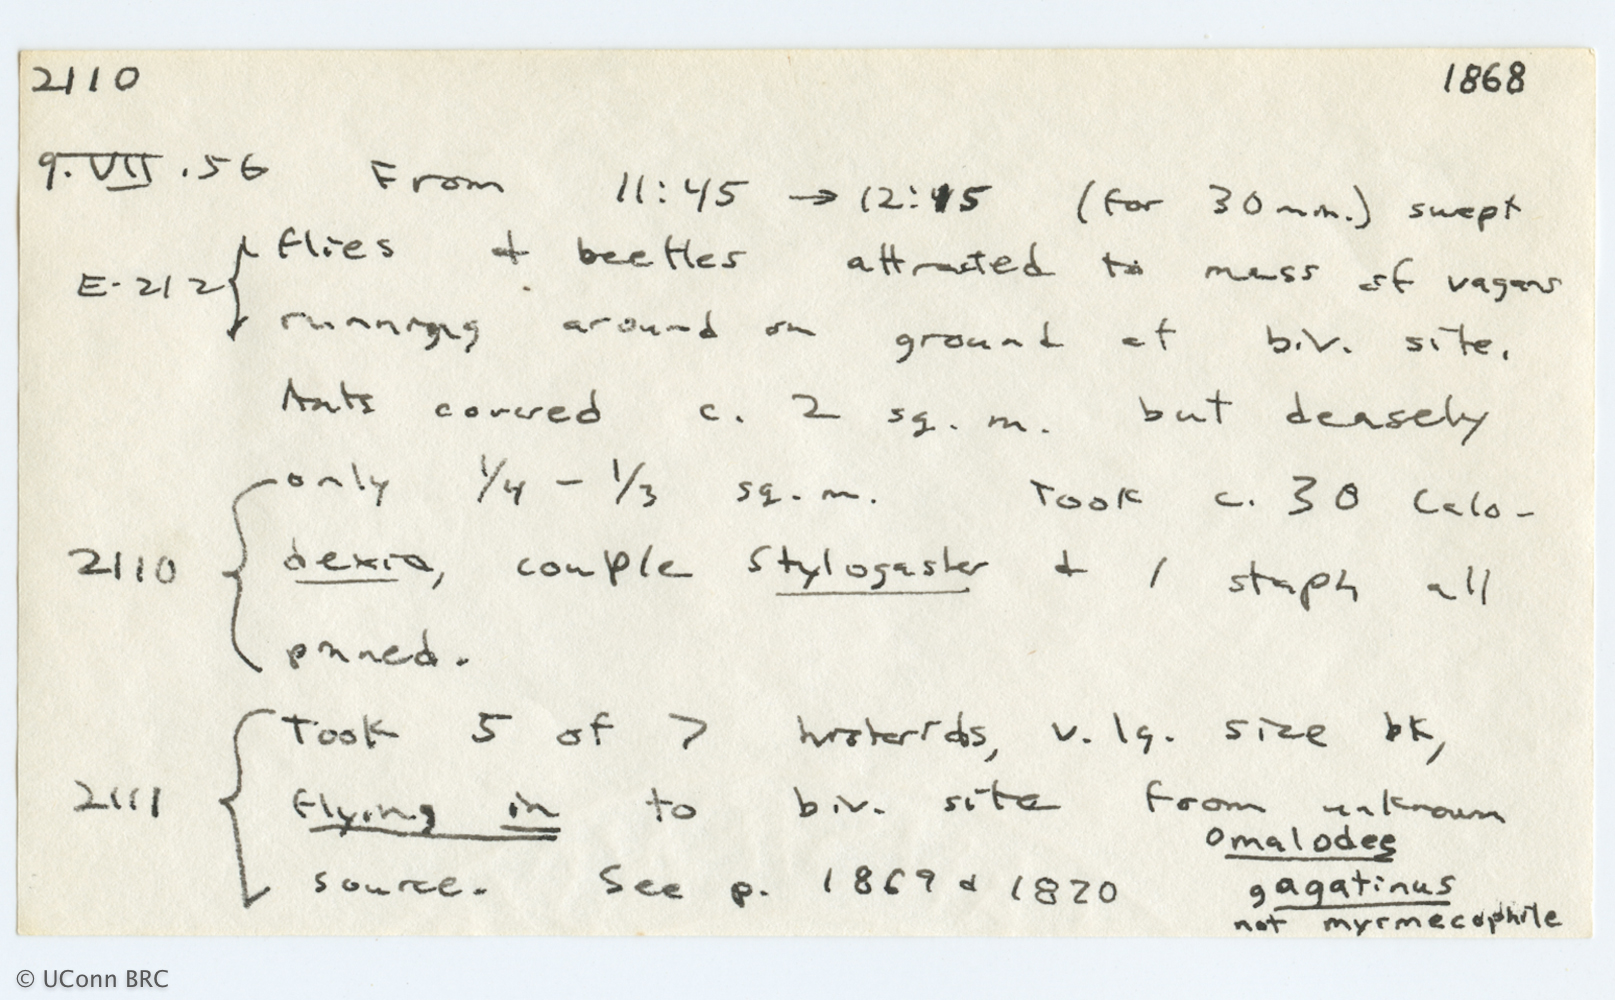 2110 1868
9.VII.56 From 11:45 → 12:15 (for 30 min.) swept
flies & beetles attracted to mass of vagans
E-212
running around on ground at biv. site.
Ants covered c. 2 sq. m. but densely
only 1/4 - 1/3 sq. m. Took c. 30 Calo-
2110 dexia, couple Stylogaster & 1 staph all
pinned.
Took 5 of 7 histerids, v. lg. size bk,
2111 flying in to biv. site from unknown
Omalodes
source. See p. 1869 & 1870 gagatinus
not myrmecophile
© UConn BRC